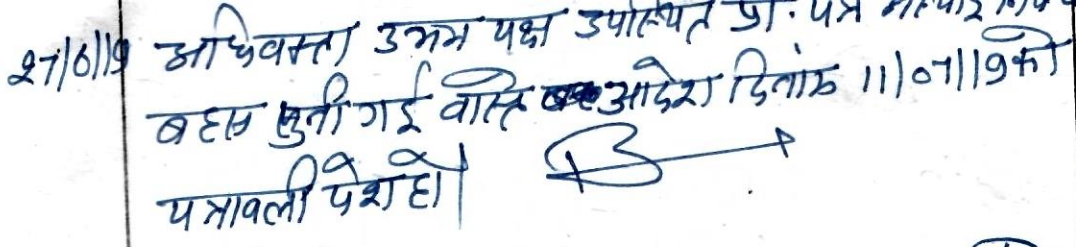 27/6/19 अधिवक्ता उभय पक्ष उपस्थित प्रा. पत्र
बहस सुनी गई वास्ते आदेश दिनांक 11/07/19 को
पत्रावली पेश हो।